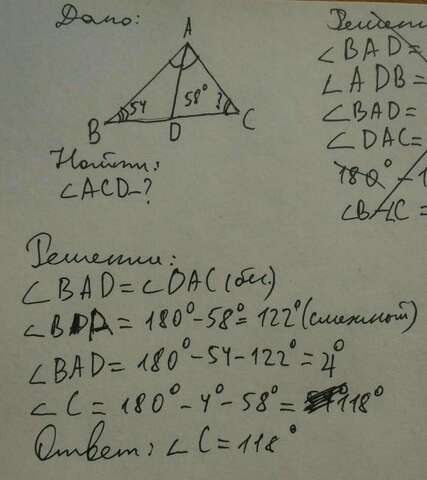 Дано:
A
54
58°
?
B
D
C
Найти:
∠ACD-?
Решени
∠BAD=
∠ADB=
∠BAD=
∠DAC=
180°-1
∠BAC=
Решении:
∠BAD=∠DAC(бис.)
∠BDA=180°-58°=122°(смежной)
∠BAD=180°-54-122°=4°
∠C=180°-4°-58°=118°
Ответ: ∠C=118°